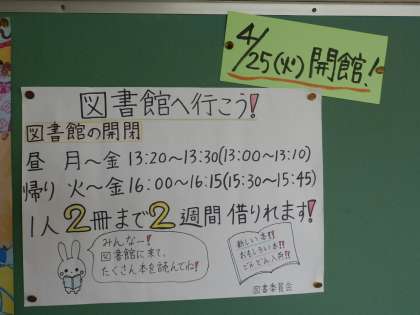 4/25(火)開館!
図書館へ行こう!
図書館の開閉
昼 月〜金 13:20〜13:30(13:00〜13:10)
帰り 火〜金 16:00〜16:15(15:30〜15:45)
1人2冊まで2週間借りれます!
みんなー!
図書館に来て、
たくさん本を読んでね!
新しい本!!
おもしろい本!!
どんどん入荷!!
図書委員会